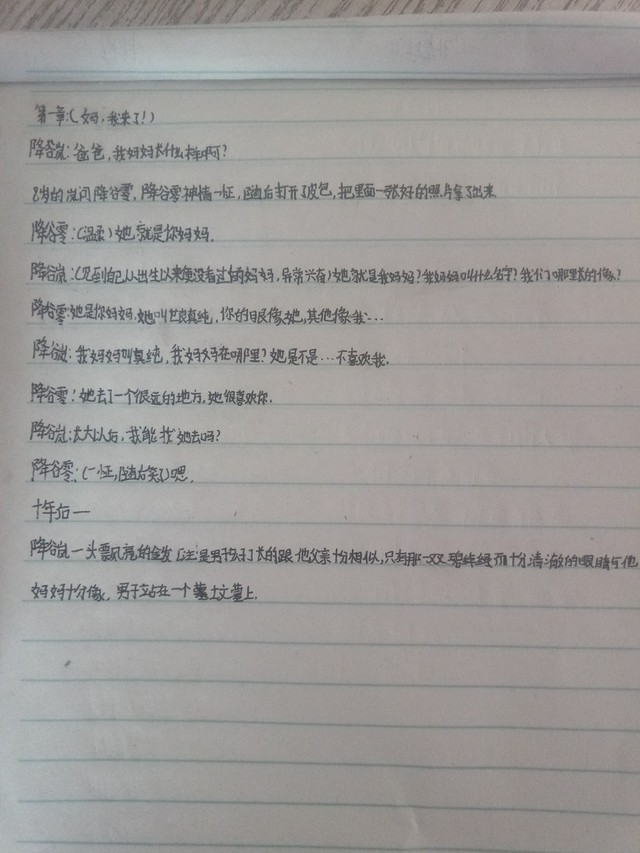 第一章:(妈,我来了!)
降谷岚:爸爸,我妈妈长什么样啊?
8岁的岚问降谷零,降谷零神情一怔,随后打开了皮包,把里面一张好的照片拿了出来
降谷零:(温柔)她就是你妈妈.
降谷岚:(见到自己从出生以来便没看过的妈妈,异常兴奋)她就是我妈妈?我妈妈叫什么名字?我们哪里长的像?
降谷零:她是你妈妈,她叫世良真纯,你的眼像她,其他像我…
降谷岚:我妈妈叫真纯,我妈妈在哪里?她是不是…不喜欢我.
降谷零:她去了一个很远的地方,她很喜欢你.
降谷岚:长大以后,我能找她去吗?
降谷零:(一怔,随后笑了)嗯.
十年后一
降谷岚一头漂亮的金发(注:是男子)长的跟他父亲十分相似,只有那一双碧绿绿而十分清澈的眼睛与他
妈妈十分像.男子站在一个墓上.